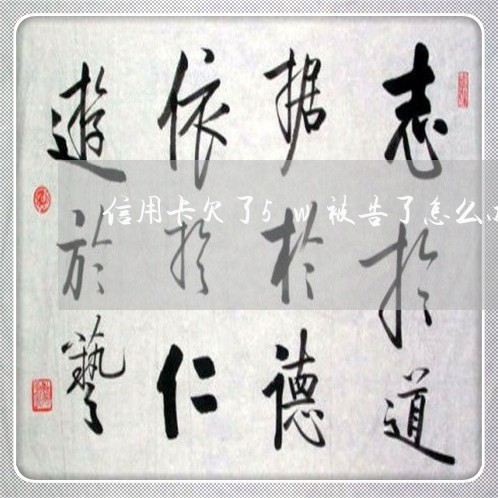 志於道
据於德
依於仁
遊於藝
信用卡欠了5w被告了怎么